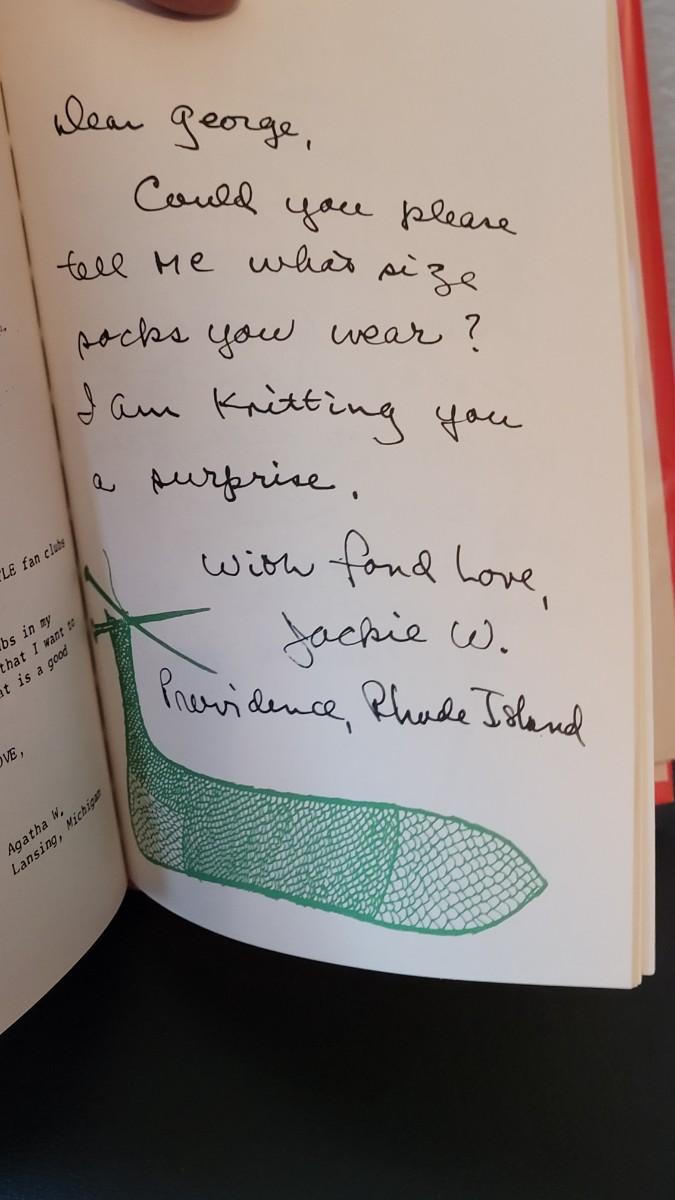 TLE fan clubs
bs in my
that I want to
at is a good
OVE,
Agatha W.
Lansing, Michigan
Dear George,
Could you please
tell me what size
socks you wear?
I am Knitting you
a surprise.
With fond Love,
Jackie W.
Providence, Rhode Island